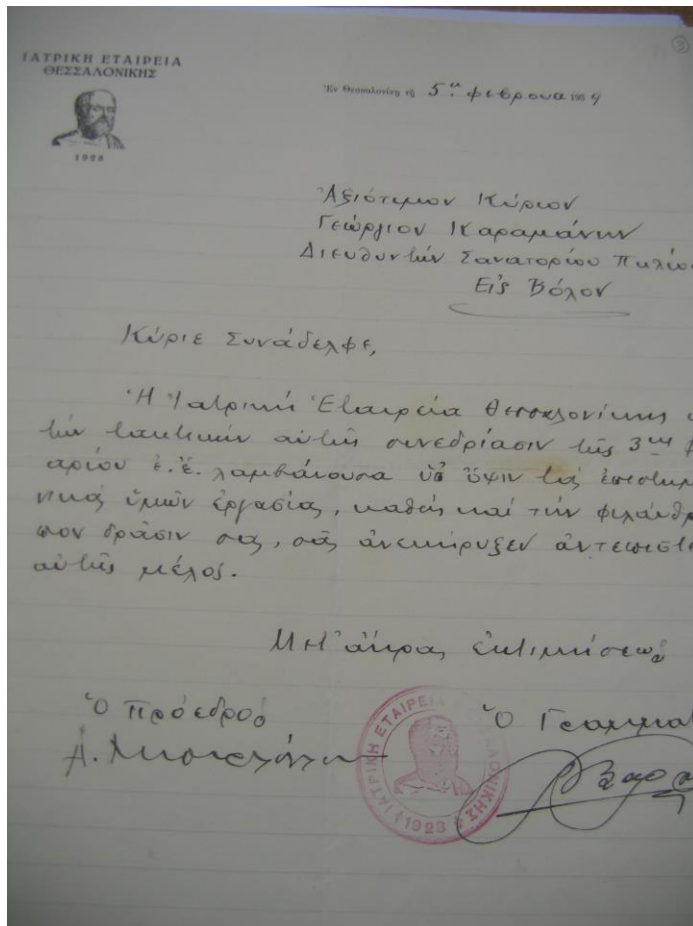 ΙΑΤΡΙΚΗ ΕΤΑΙΡΕΙΑ
ΘΕΣΣΑΛΟΝΙΚΗΣ
1923
Ἐν Θεσσαλονίκῃ τῇ 5ῃ φεβρουα 1954
3
Ἀξιότιμον Κύριον
Γεώργιον Καραμάνην
Διευθυντὴν Σανατορίου Πηλίου
Εἰς Βόλον
Κύριε Συνάδελφε,
Ἡ Ἰατρικὴ Ἑταιρεία Θεσσαλονίκης
τὴν τακτικὴν αὐτῆς συνεδρίασιν τῆς 3ης
αρίου ἐ.ἔ. λαμβάνουσα ὑπ' ὄψιν τὰς ἐπιστημ
νικὰς ὑμῶν ἐργασίας, καθὼς καὶ τὴν φιλάνθρ
πον δρᾶσιν σας, σᾶς ἀνεκήρυξεν ἀντεπιστέ
αὐτῆς μέλος.
Μετ' ἄκρας ἐκτιμήσεως
Ὁ Πρόεδρος
Ὁ Γραμμα
ΙΑΤΡΙΚΗ ΕΤΑΙΡΕΙΑ ΘΕΣΣΑΛΟΝΙΚΗΣ
1923